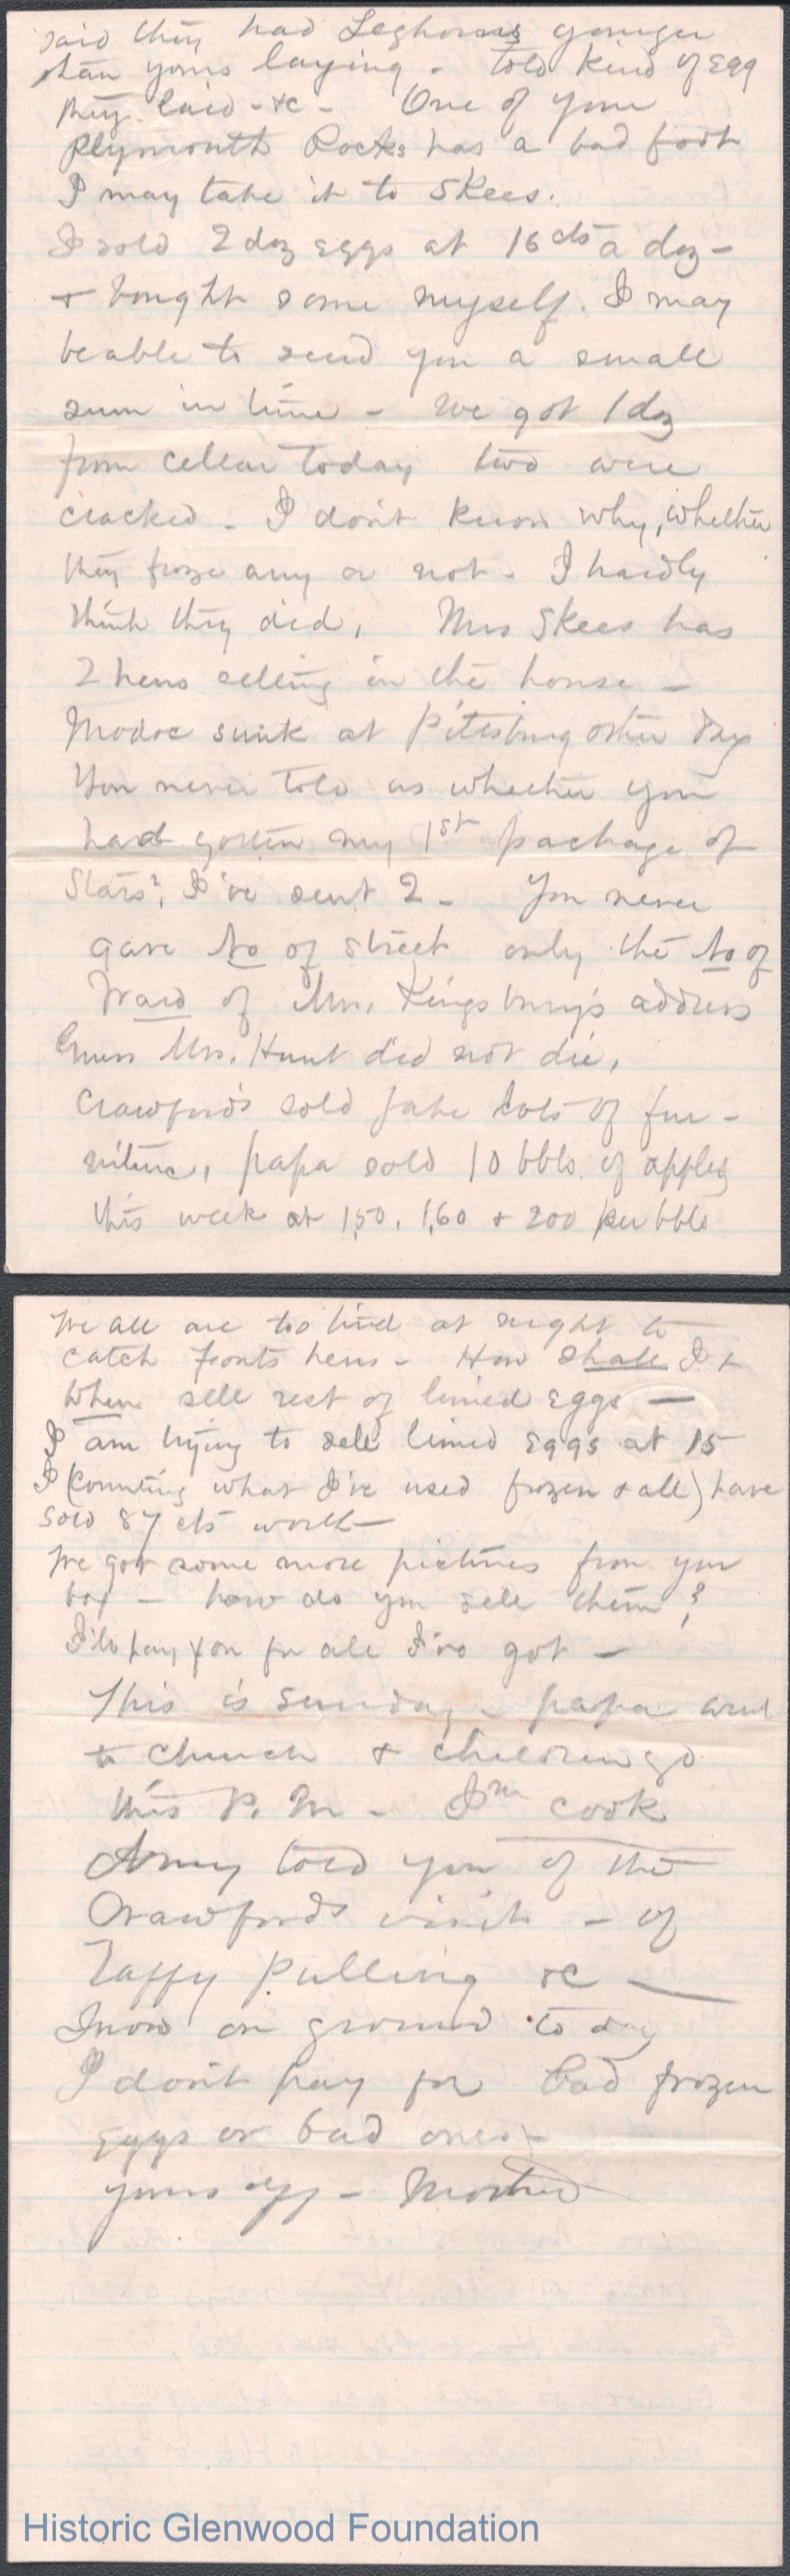 said they had Leghorns younger
than yours laying - Told kind of Egg
they laid - &c - One of your
Plymouth Rocks has a bad foot
I may take it to Skees.
I sold 2 doz eggs at 16 cts a doz -
& bought some myself. I may
be able to send you a small
sum in time - We got 1 doz
from cellar today two were
cracked - I don't know why, whether
they froze any or not - I hardly
think they did, Mrs Skees has
2 hens setting in the house -
Modoc sunk at Pittsburg other day
You never told us whether you
had gotten my 1st package of
Stars? I've sent 2 - You never
gave No of street only the No of
Ward of Mrs. Kingsbury's address
Guess Mrs. Hunt did not die,
Crawford's sold lots of fur -
niture, papa sold 10 bbls. of apples
this week at 1,50, 1,60 & 200 per bbls
We all are too tired at night to
catch hens - How shall I &
when sell rest of limed eggs —
I am trying to sell limed Eggs at 15
I (counting what I've used frozen & all) have
sold 87 cts worth —
We got some more pictures from your
box - how do you sell them?
I'll pay you for all I've got —
This is Sunday - papa went
to Church & children go
this P. M - I'm cook
Amy told you of the
Crawfords visit - of
Taffy Pulling &c —
Snow on ground to day
I don't pay for bad frozen
Eggs or bad ones -
yours aff - Mother
Historic Glenwood Foundation